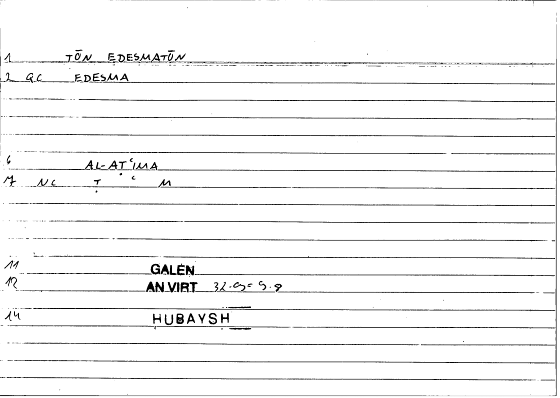 1 TŌN EDESMATŌN
2 GC EDESMA
6 AL-AṬʿIMA
7 NC Ṭ ʿ M
11 GALEN
12 AN VIRT
14 ḤUBAYSH